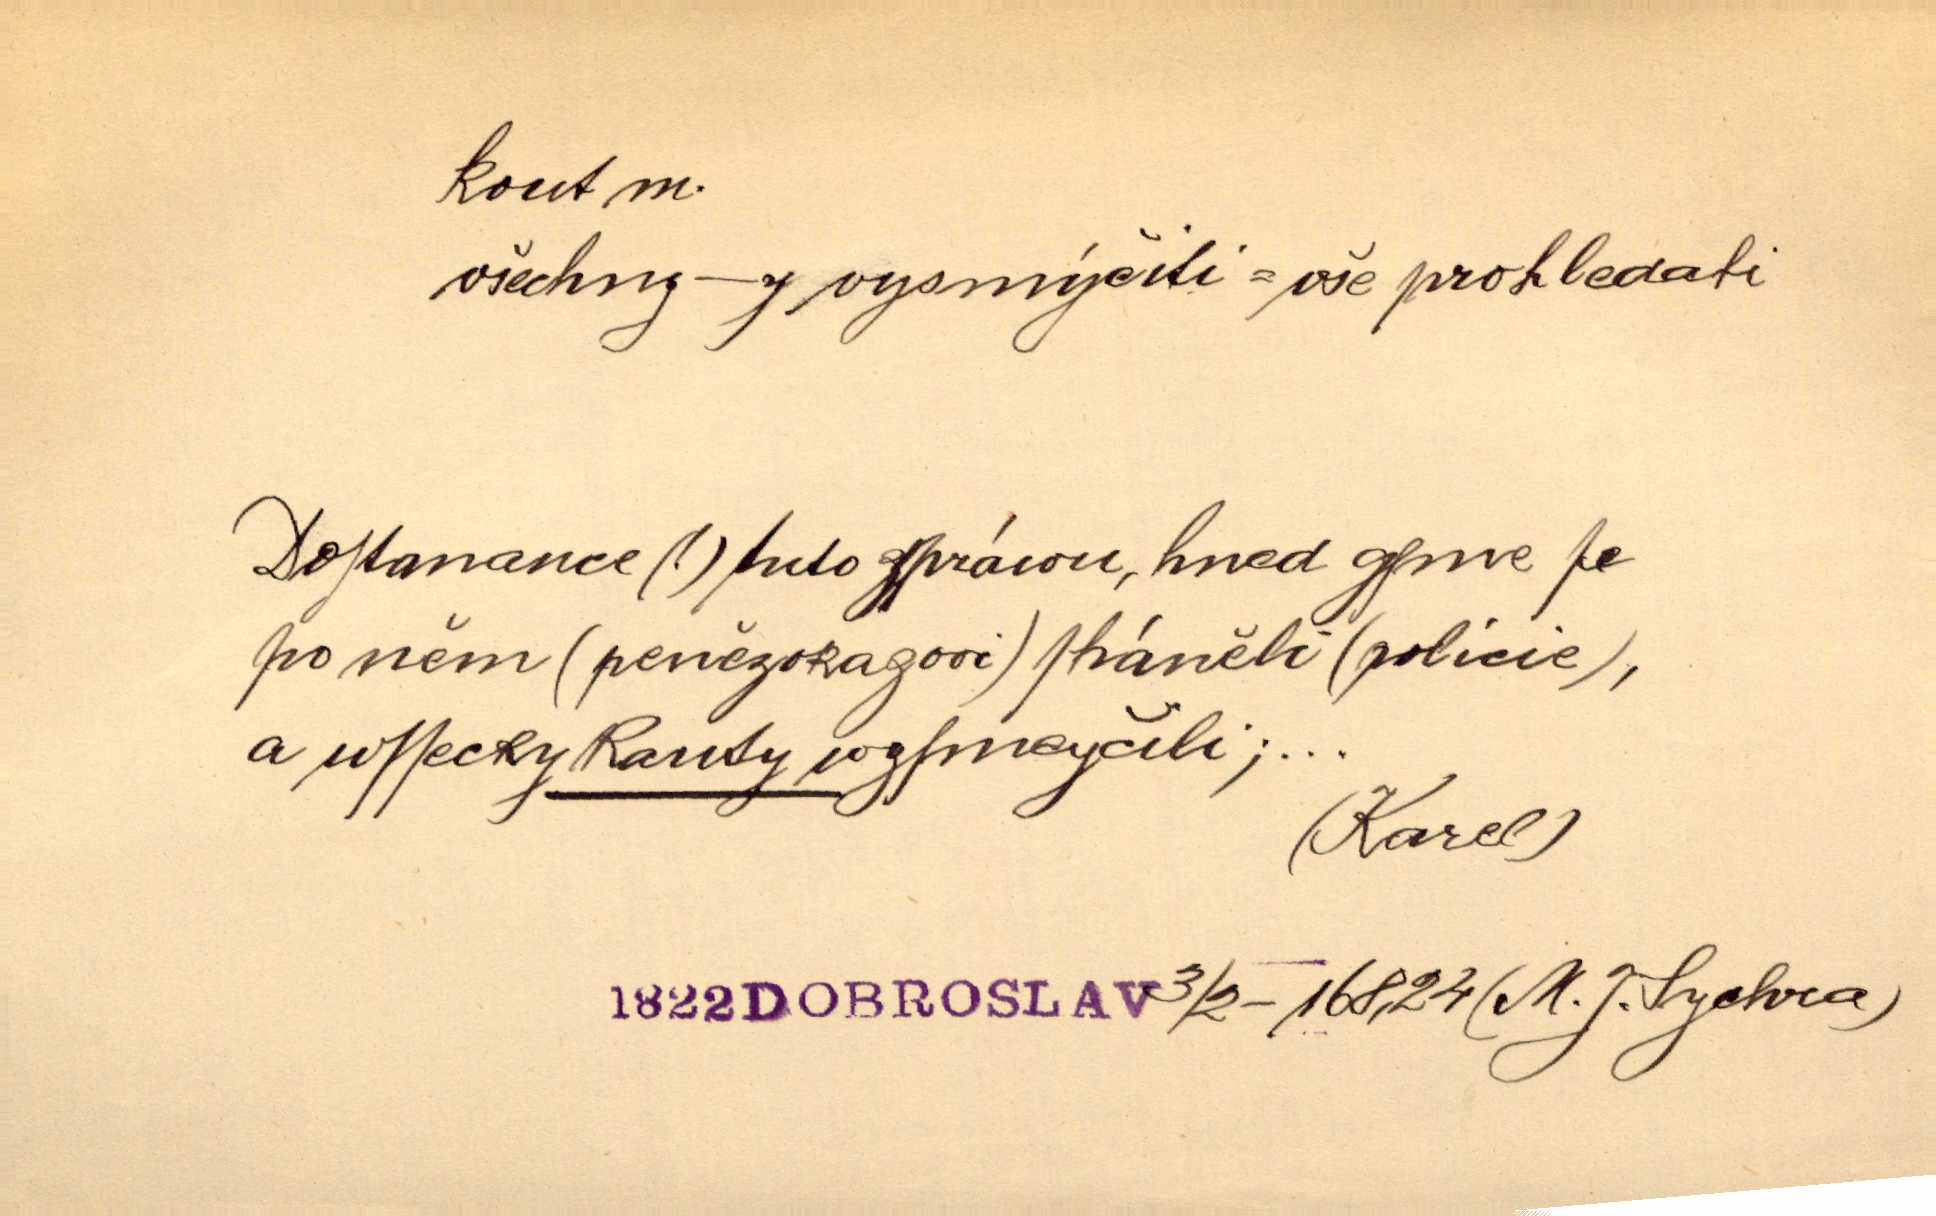 kout m.
všechny —y vysmýčiti = vše prohledati
Doſtanance (!) tuto zpráwu, hned gſme ſe
po něm (penězokagovi) ſháněli (policie),
a wſſecky kauty wyſmeyčili; ...
(Karel)
1822 DOBROSLAV 3/2 – 168,24 (M. J. Sychra)